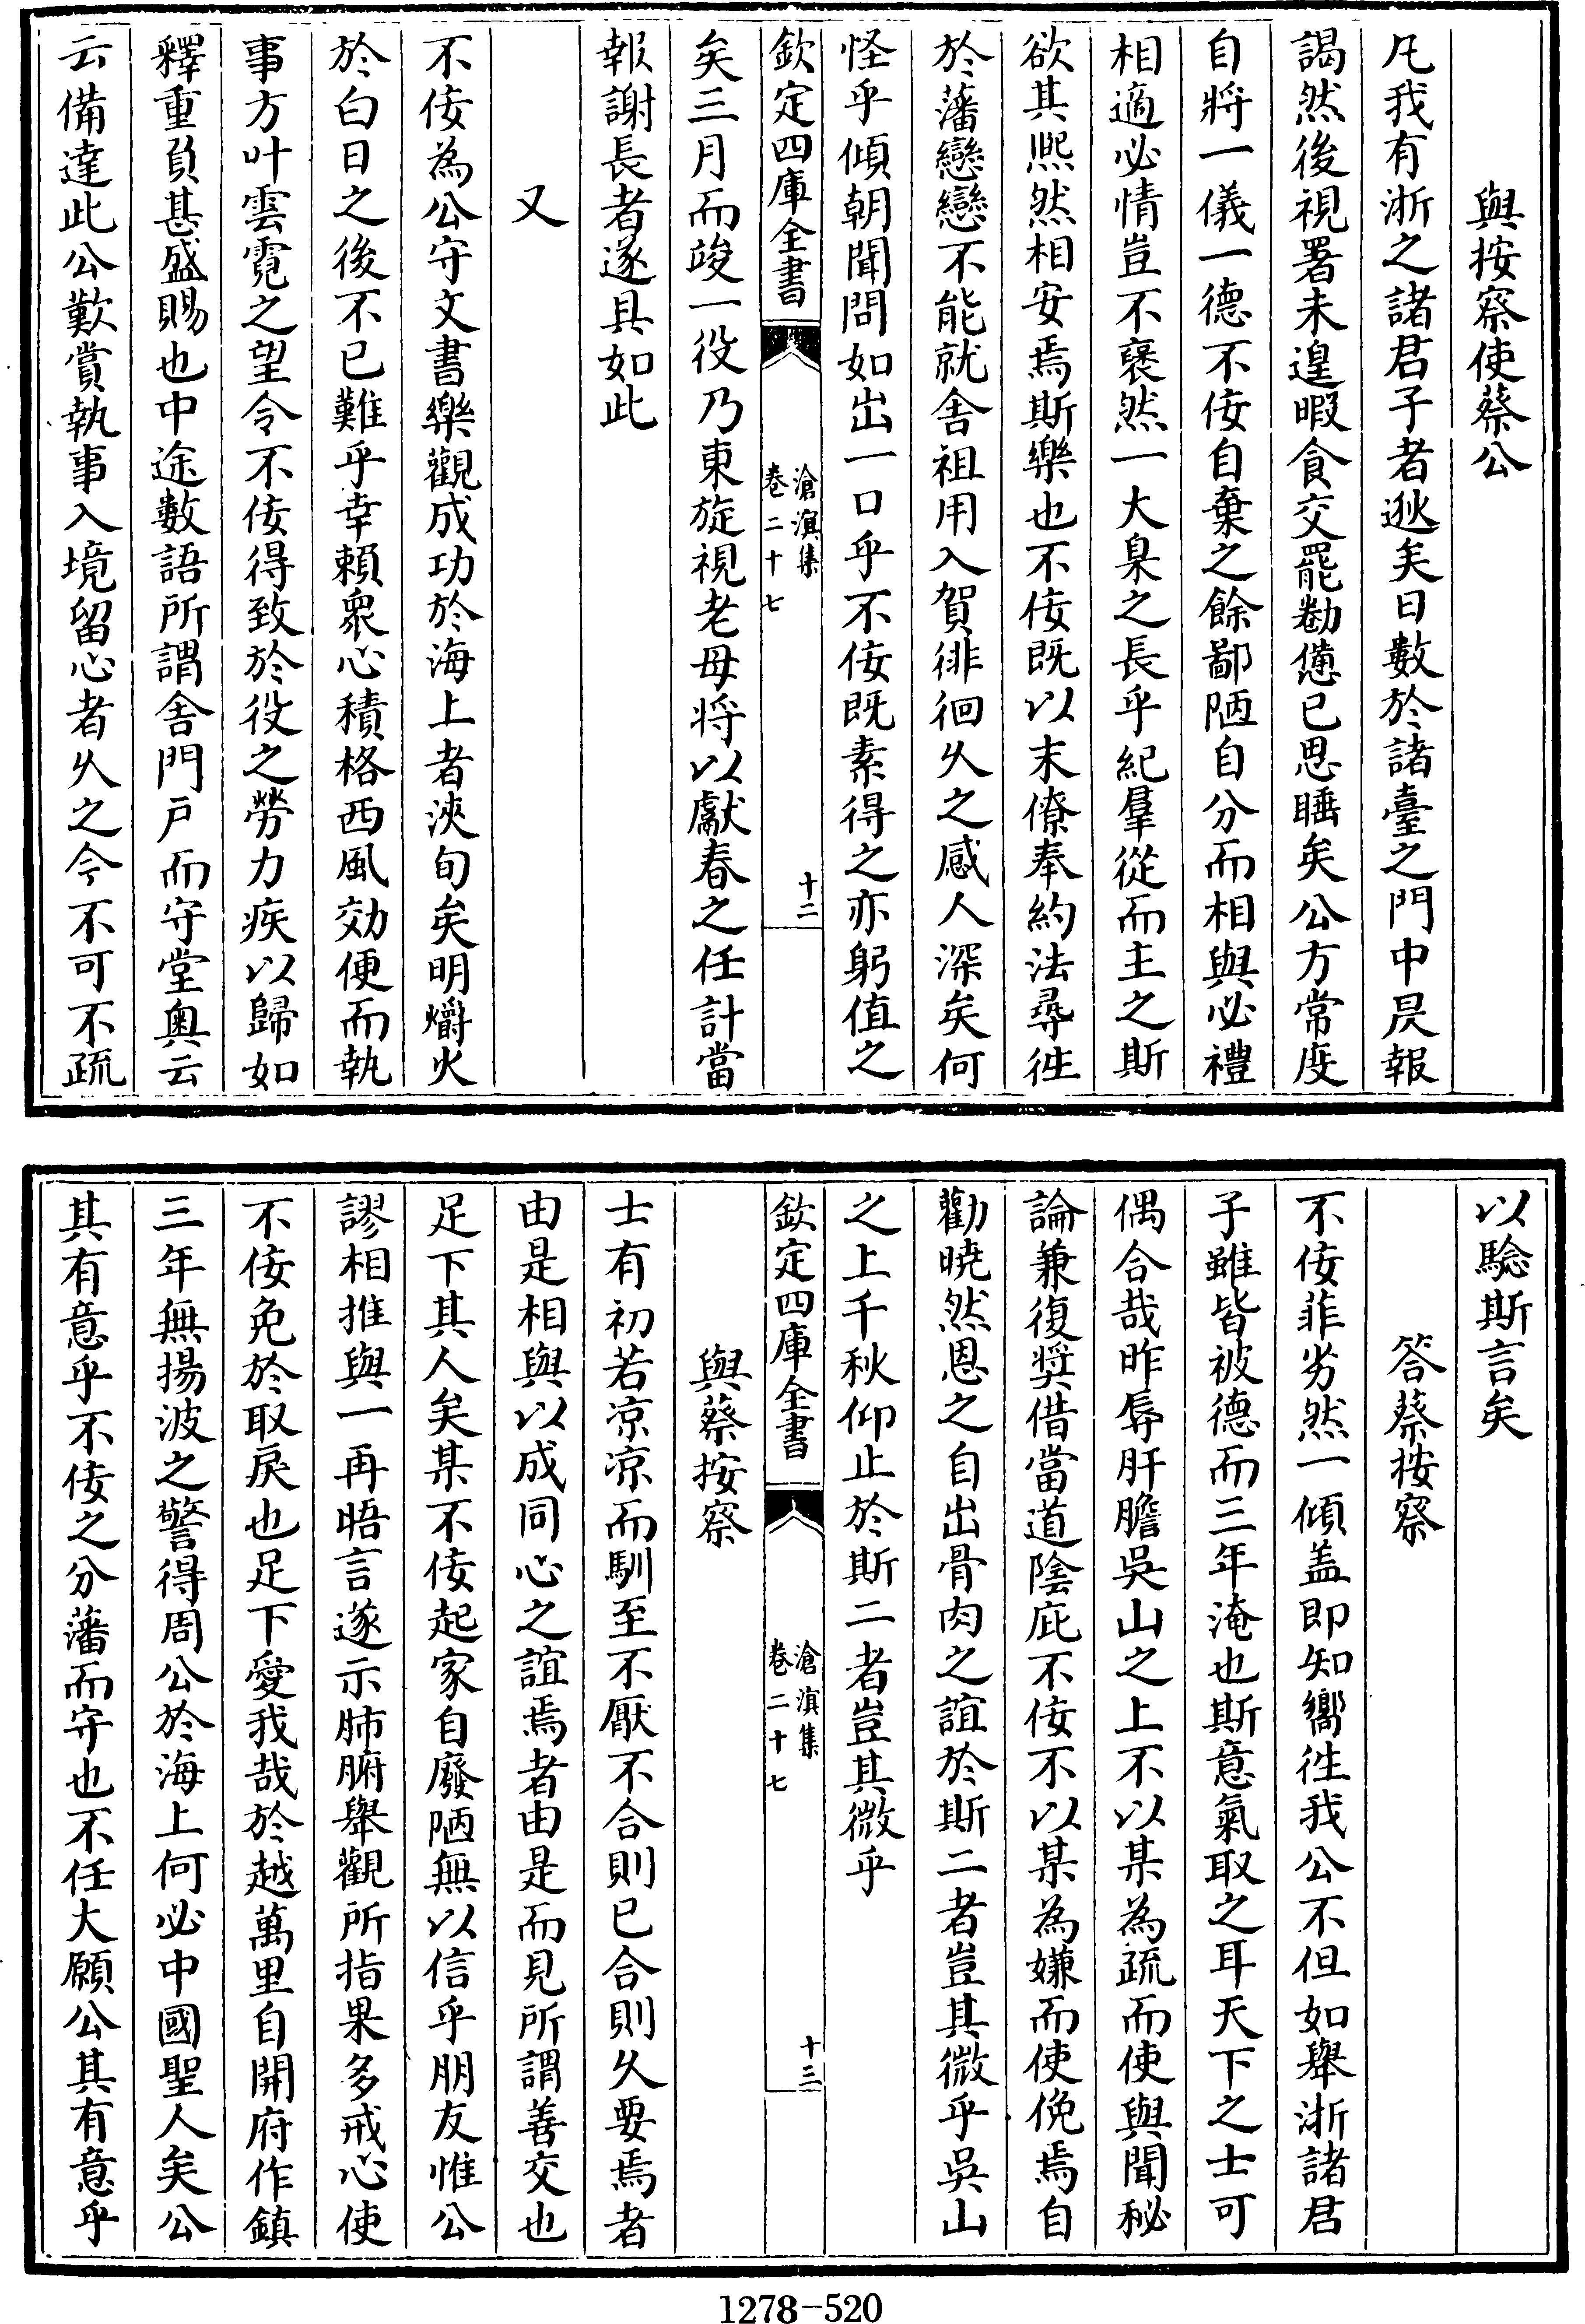 與按察使蔡公
凡我有浙之諸君子者逖矣日數於諸臺之門中昃報
謁然後視署未遑暇食交罷勌憊已思睡矣公方常度
自將一儀一德不佞自棄之餘鄙陋自分而相與必禮
相適必情豈不褎然一大臬之長乎紀羣從而主之斯
欲其煕然相安焉斯樂也不佞既以末僚奉約法尋徃
於藩戀戀不能就舍祖用入賀徘徊乆之感人深矣何
怪乎傾朝聞問如出一口乎不佞既素得之亦躬值之
欽定四庫全書
滄溟集
卷二十七
十二
矣三月而竣一役乃東旋視老母将以獻春之任計當
報謝長者遂具如此
又
不佞為公守文書樂觀成功於海上者浹旬矣明爝火
於白日之後不已難乎幸賴衆心積格西風効便而執
事方叶雲霓之望令不佞得致於役之勞力疾以歸如
釋重負甚盛賜也中途數語所謂舎門戸而守堂奥云
云備達此公歎賞執事入境留心者乆之今不可不疏
以騐斯言矣
答蔡按察
不佞菲劣然一傾盖即知嚮徃我公不但如舉浙諸君
子雖皆被德而三年淹也斯意氣取之耳天下之士可
偶合哉昨辱肝膽吳山之上不以某為疏而使與聞秘
論兼復奨借當道陰庇不佞不以某為嫌而使俛焉自
勸曉然恩之自出骨肉之誼於斯二者豈其微乎吳山
之上千秋仰止於斯二者豈其微乎
欽定四庫全書
滄溟集
卷二十七
十三
與蔡按察
士有初若凉凉而馴至不厭不合則已合則乆要焉者
由是相與以成同心之誼焉者由是而見所謂善交也
足下其人矣某不佞起家自廢陋無以信乎朋友惟公
謬相推與一再晤言遂示肺腑舉觀所指果多戒心使
不佞免於取戾也足下愛我哉於越萬里自開府作鎮
三年無揚波之警得周公於海上何必中國聖人矣公
其有意乎不佞之分藩而守也不任大願公其有意乎
1278-520